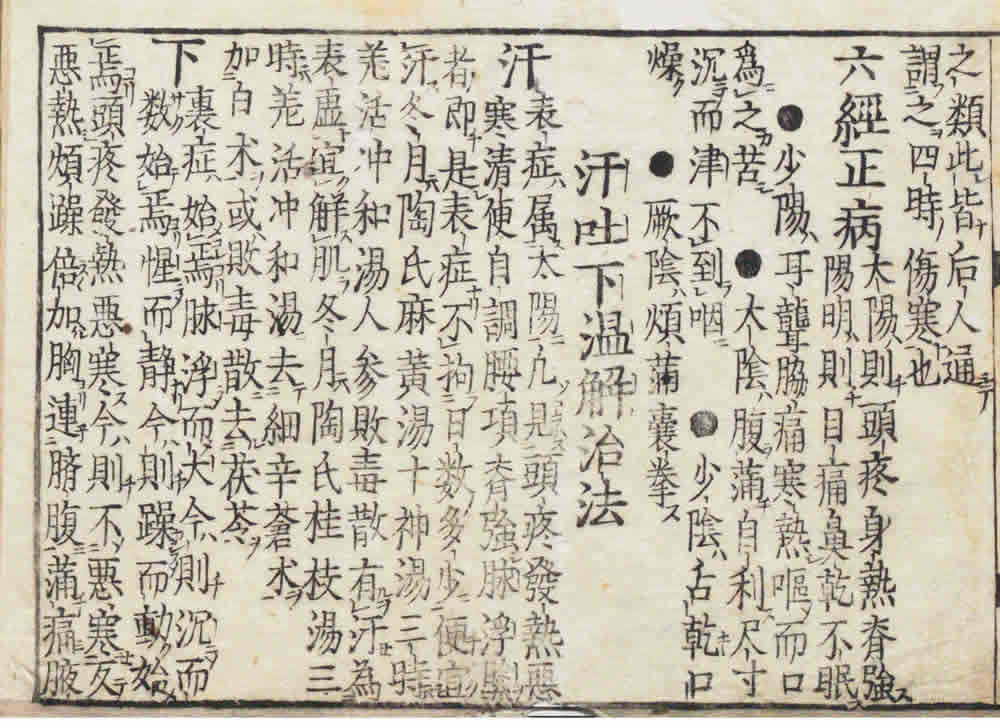 之類此皆后人通
謂之四時傷寒也
六經正病
太陽則頭疼身熱脊強
陽明則目痛鼻乾不眠
●少陽耳聾脇痛寒熱嘔而口
爲之苦●太陰腹滿自利尺寸
沉而津不到咽●少陰舌乾口
燥●厥陰煩滿囊拳
汗吐下温解治法
汗
表症属太陽凡見頭疼發熱惡
寒清使自調腰項脊強脉浮緊
者即是表症不拘日数多少便宜
汗冬月陶氏麻黃湯十神湯三時
羌活冲和湯人参敗毒散有汗為
表虛宜解肌冬月陶氏桂枝湯三
時羌活冲和湯去細辛蒼朮
加白朮或敗毒散去茯苓
下
裏症始焉脉浮而大今則沉而
数始焉惺而静今則躁而動始
焉頭疼發熱惡寒今則不惡寒反
惡熱煩躁倍加胸連臍腹滿痛腋